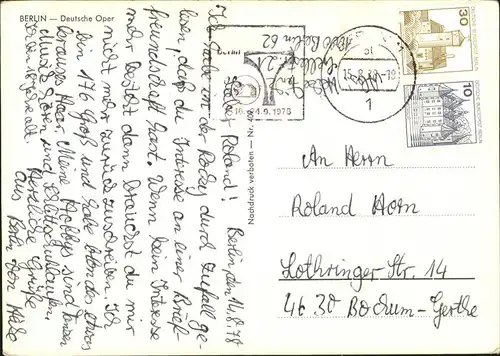 BERLIN — Deutsche Oper
Berlin, den 14.8.78
Lieber Roland!
Ich habe in der Rocky durch Zufall ge-
lesen, daß du Interesse an einer Brief-
freundschaft hast. Wenn kein Interesse
mehr besteht dann brauchst du mir
nicht mehr zurückzuschreiben. Ich
bin 176 groß und habe blondes etwas
krauses Haar. Meine Hobbys sind
Musik hören und Schlittschuhlaufen.
Herzliche Grüße
aus Berlin von
1000 Berlin 62
14.9.1978
1
30
10
Nachdruck verboten — Nr.
An Herrn
Roland Horn
Lothringer Str. 14
4630 Bochum-Gerthe